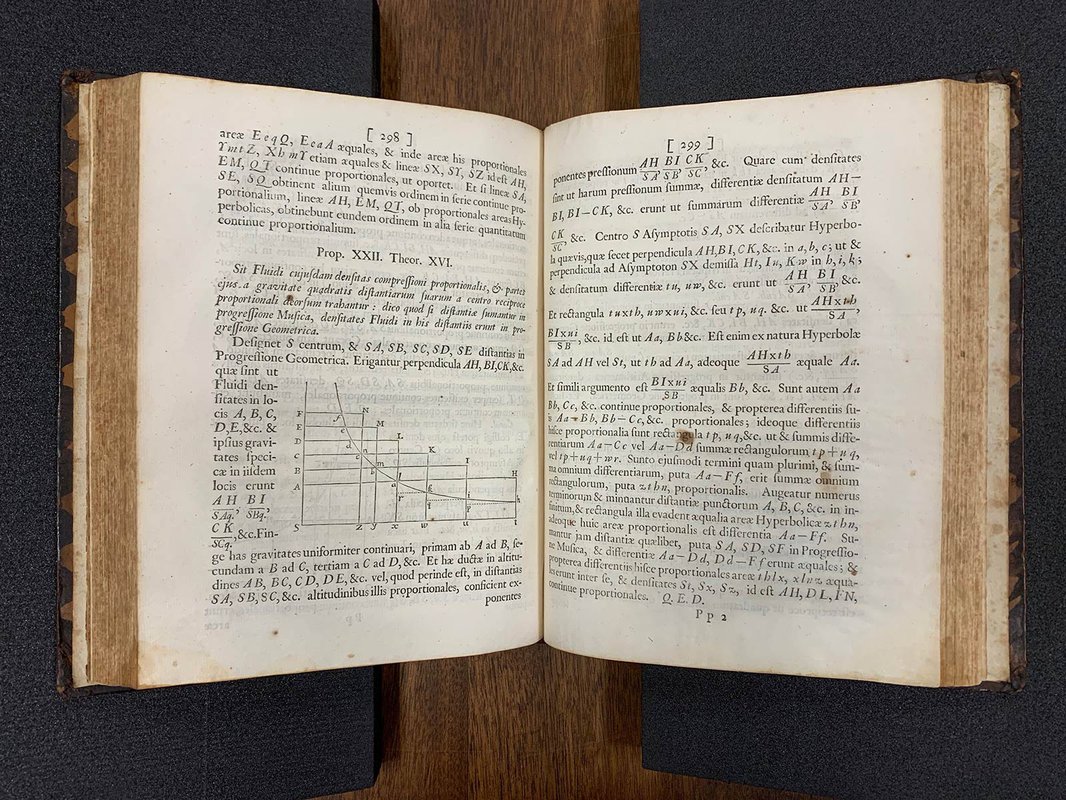 [ 298 ]
areæ EeqQ, EeaA æquales, & inde areæ his proportionales
YmtZ, XhmY etiam æquales & lineæ SX, SY, SZ id est AH,
EM, QT continue proportionales, ut oportet. Et si lineæ SA,
SE, SQ obtinent alium quemvis ordinem in serie continue pro-
portionalium, lineæ AH, EM, QT, ob proportionales areas Hy-
perbolicas, obtinebunt eundem ordinem in alia serie quantitatum
continue proportionalium.
Prop. XXII. Theor. XVI.
Sit Fluidi cujusdam densitas compressioni proportionalis, & partes
ejus a gravitate quadratis distantiarum suarum a centro reciproce
proportionali deorsum trahantur: dico quod si distantiæ sumantur in
progressione Musica, densitates Fluidi in his distantiis erunt in pro-
gressione Geometrica.
Designet S centrum, & SA, SB, SC, SD, SE distantias in
Progressione Geometrica. Erigantur perpendicula AH, BI, CK, &c.
quæ sint ut
Fluidi den-
sitates in lo-
cis A, B, C,
D, E, &c. &
ipsius gravi-
tates speci-
cæ in iisdem
locis erunt
AH BI
SAq.' SBq.'
CK
SCq.' &c. Fin-
F N
E M
D L
C K
B I
A H
S z y x w u t
ge has gravitates uniformiter continuari, primam ab A ad B, se-
cundam a B ad C, tertiam a C ad D, &c. Et hæ ductæ in altitu-
dines AB, BC, CD, DE, &c. vel, quod perinde est, in distantias
SA, SB, SC, &c. altitudinibus illis proportionales, conficient ex-
ponentes
[ 299 ]
ponentes pressionum AH/SA, BI/SB, CK/SC, &c. Quare cum densitates
sint ut harum pressionum summæ, differentiæ densitatum AH—
BI, BI—CK, &c. erunt ut summarum differentiæ AH/SA, BI/SB,
CK/SC, &c. Centro S Asymptotis SA, SX describatur Hyperbo-
la quævis, quæ secet perpendicula AH, BI, CK, &c. in a, b, c; ut &
perpendicula ad Asymptoton SX demissa Ht, Iu, Kw in h, i, k;
& densitatum differentiæ tu, uw, &c. erunt ut AH/SA, BI/SB, &c.
Et rectangula tuxth, uwxui, &c. seu tp, uq, &c. ut AHxth/SA,
BIxui/SB, &c. id est ut Aa, Bb &c. Est enim ex natura Hyperbolæ
SA ad AH vel St, ut th ad Aa, adeoque AHxth/SA æquale Aa.
Et simili argumento est BIxui/SB æqualis Bb, &c. Sunt autem Aa
Bb, Cc, &c. continue proportionales, & propterea differentiis su-
is Aa—Bb, Bb—Cc, &c. proportionales; ideoque differentiis
hisce proportionalia sunt rectangula tp, uq, &c. ut & summis diffe-
rentiarum Aa—Cc vel Aa—Dd summæ rectangulorum tp+uq,
vel tp+uq+wr. Sunto ejusmodi termini quam plurimi, & sum-
ma omnium differentiarum, puta Aa—Ff, erit summæ omnium
rectangulorum, puta zthn, proportionalis. Augeatur numerus
terminorum & minuantur distantiæ punctorum A, B, C, &c. in in-
finitum, & rectangula illa evadent æqualia areæ Hyperbolicæ zthn,
adeoque huic areæ proportionalis est differentia Aa—Ff. Su-
mantur jam distantiæ quælibet, puta SA, SD, SF in Progressio-
ne Musica, & differentiæ Aa—Dd, Dd—Ff erunt æquales; &
propterea differentiis hisce proportionales areæ thlx, xlnz æqua-
les erunt inter se, & densitates St, Sx, Sz, id est AH, DL, FN,
continue proportionales. Q. E. D.
Pp 2